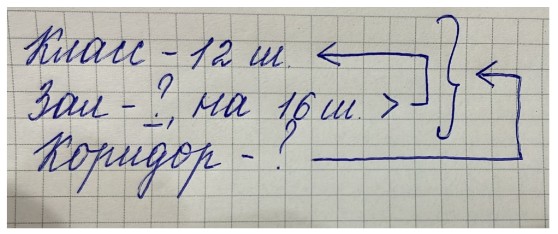 Класс - 12 ш.
Зал - ?, на 16 ш. >
Коридор - ?